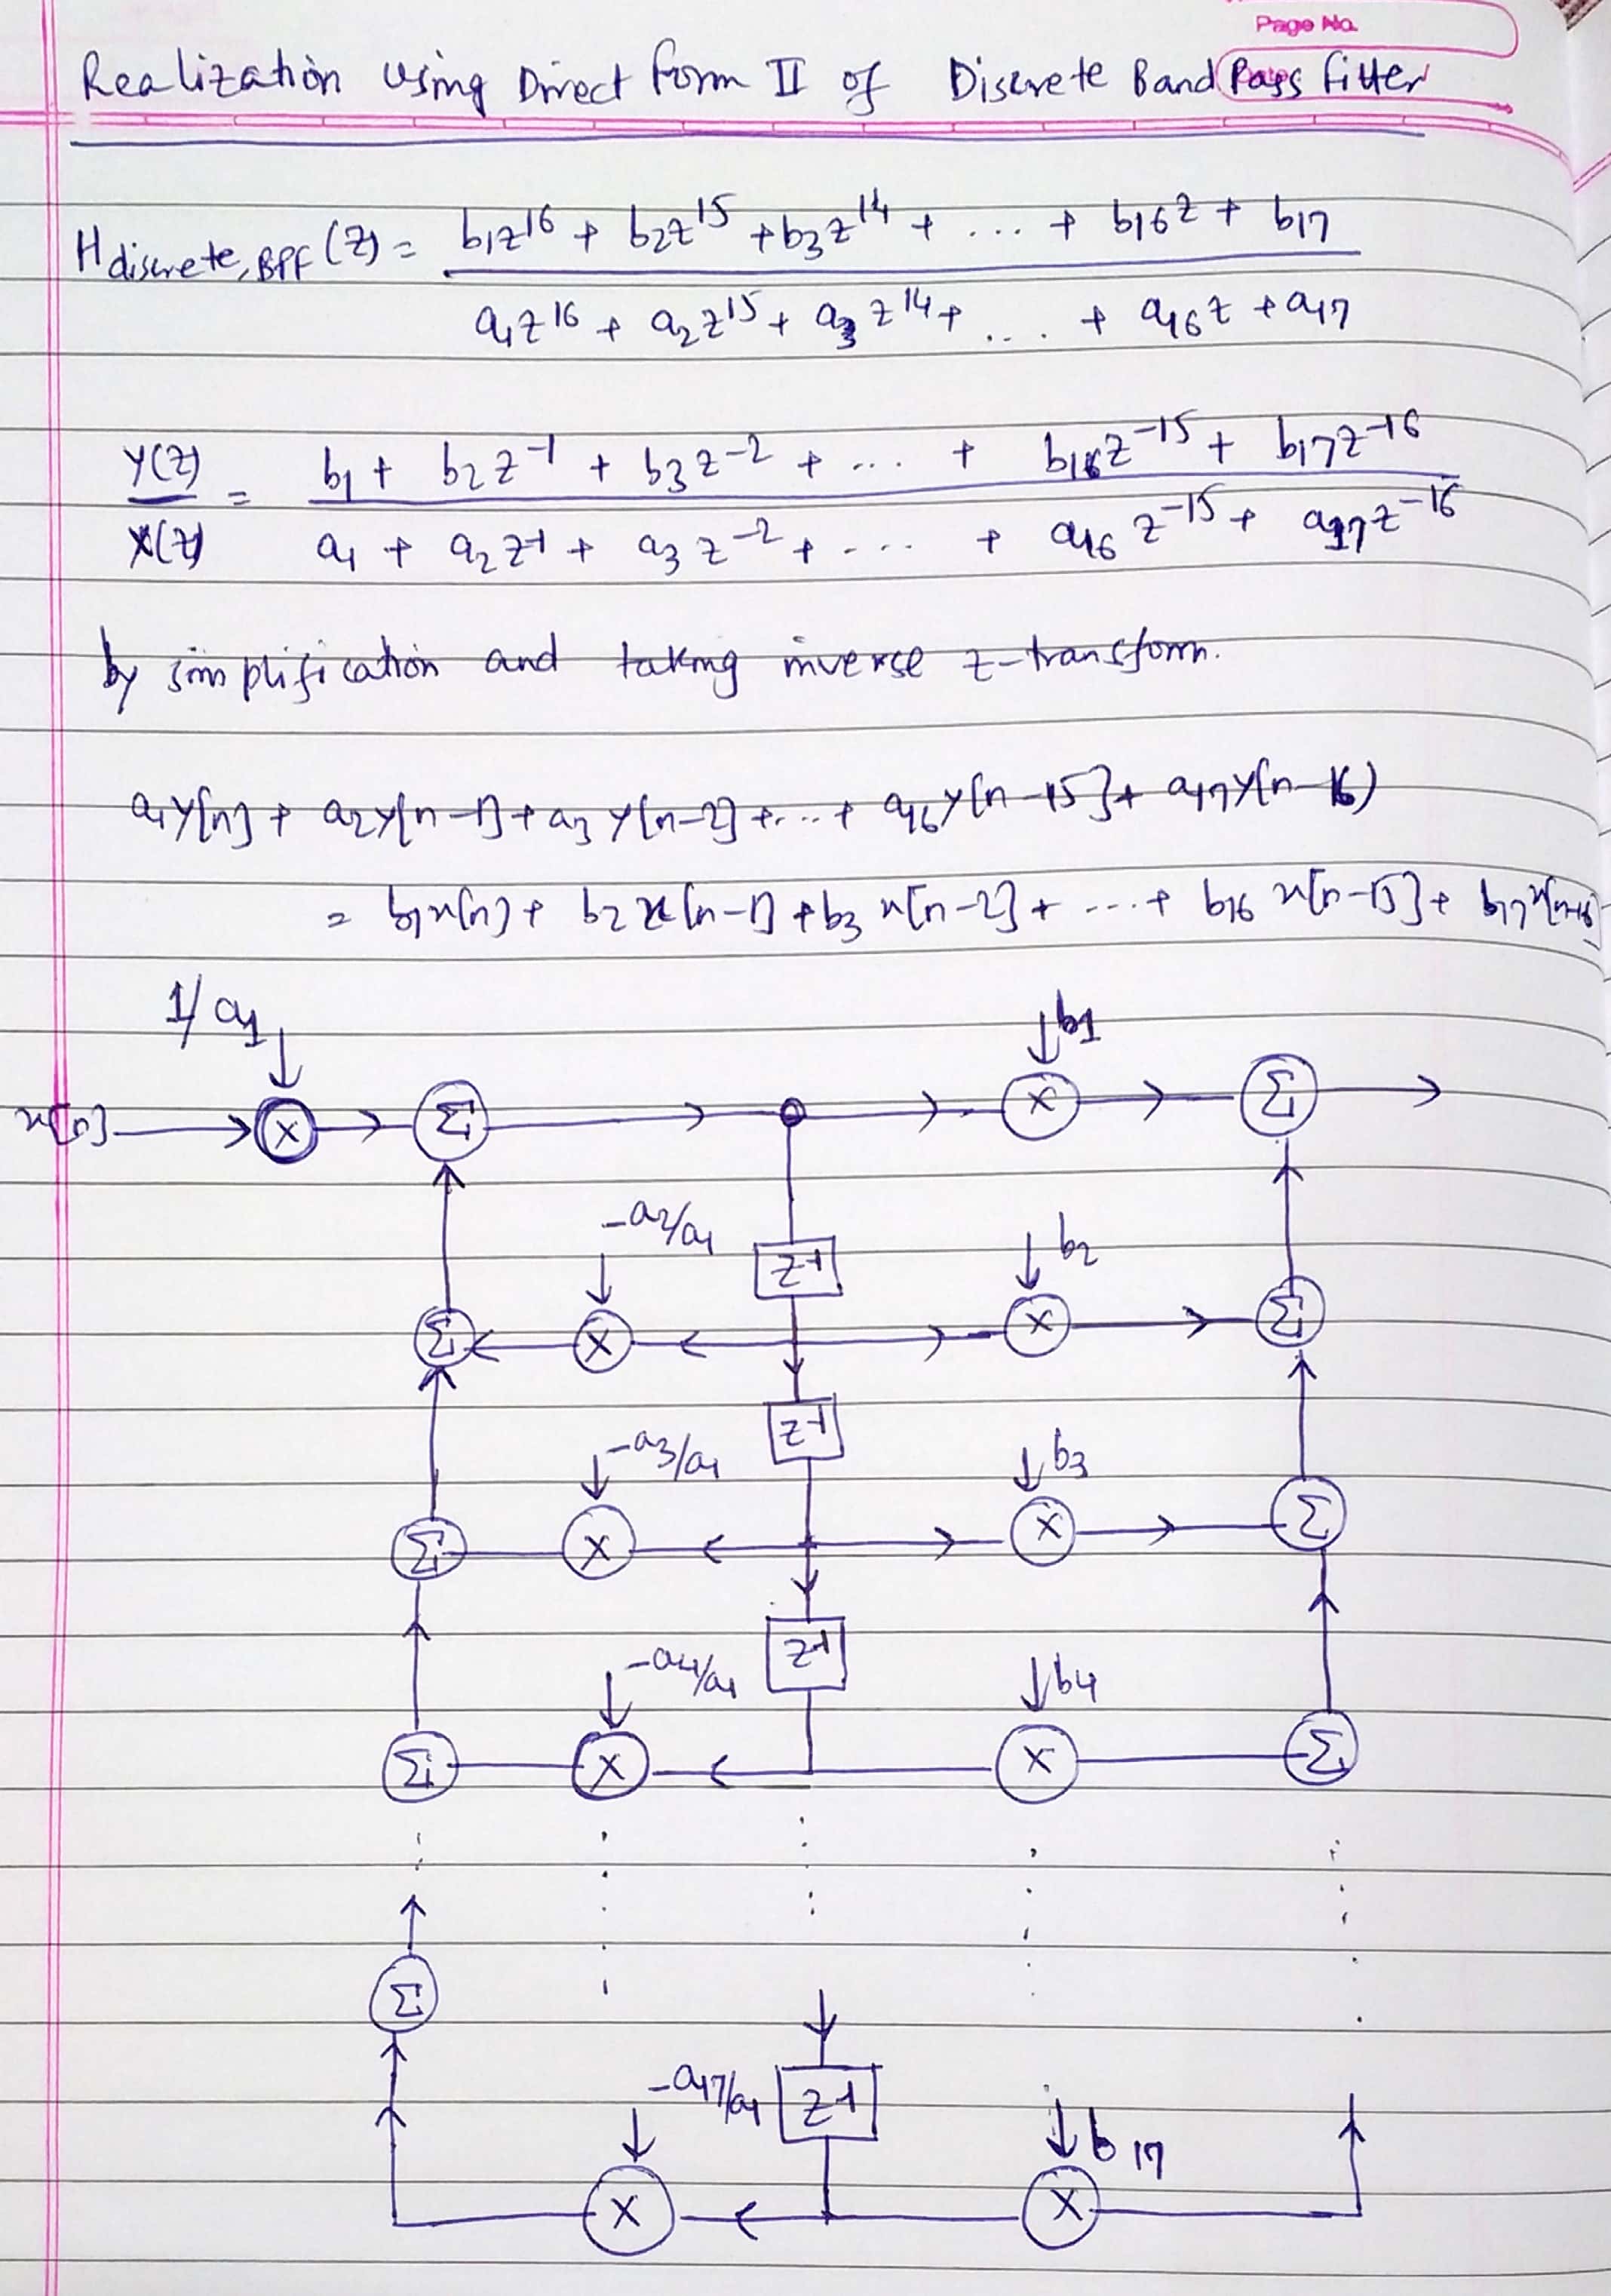 Page No.
Realization using Direct Form II of Discrete Band Pass Filter
H discrete, BPF (Z) = b1z^16 + b2z^15 + b3z^14 + ... + b16z + b17
a1z^16 + a2z^15 + a3z^14 + .... + a16z + a17
Y(Z) = b1 + b2z^-1 + b3z^-2 + ... + b16z^-15 + b17z^-16
X(Z) a1 + a2z^-1 + a3z^-2 + .... + a16z^-15 + a17z^-16
by simplification and taking inverse z-transform.
a1y[n] + a2y[n-1] + a3y[n-2] + .... + a16y[n-15] + a17y[n-16)
= b1x[n] + b2x[n-1] + b3x[n-2] + .... + b16x[n-15] + b17x[n-16]
1/a1 b1
x[n] × Σ × Σ
-a2/a1 z^-1 b2
Σ × × Σ
z^-1
-a3/a1 b3
Σ × × Σ
z^-1
-a4/a1 b4
Σ × × Σ
Σ
-a17/a1 z^-1 b17
× ×